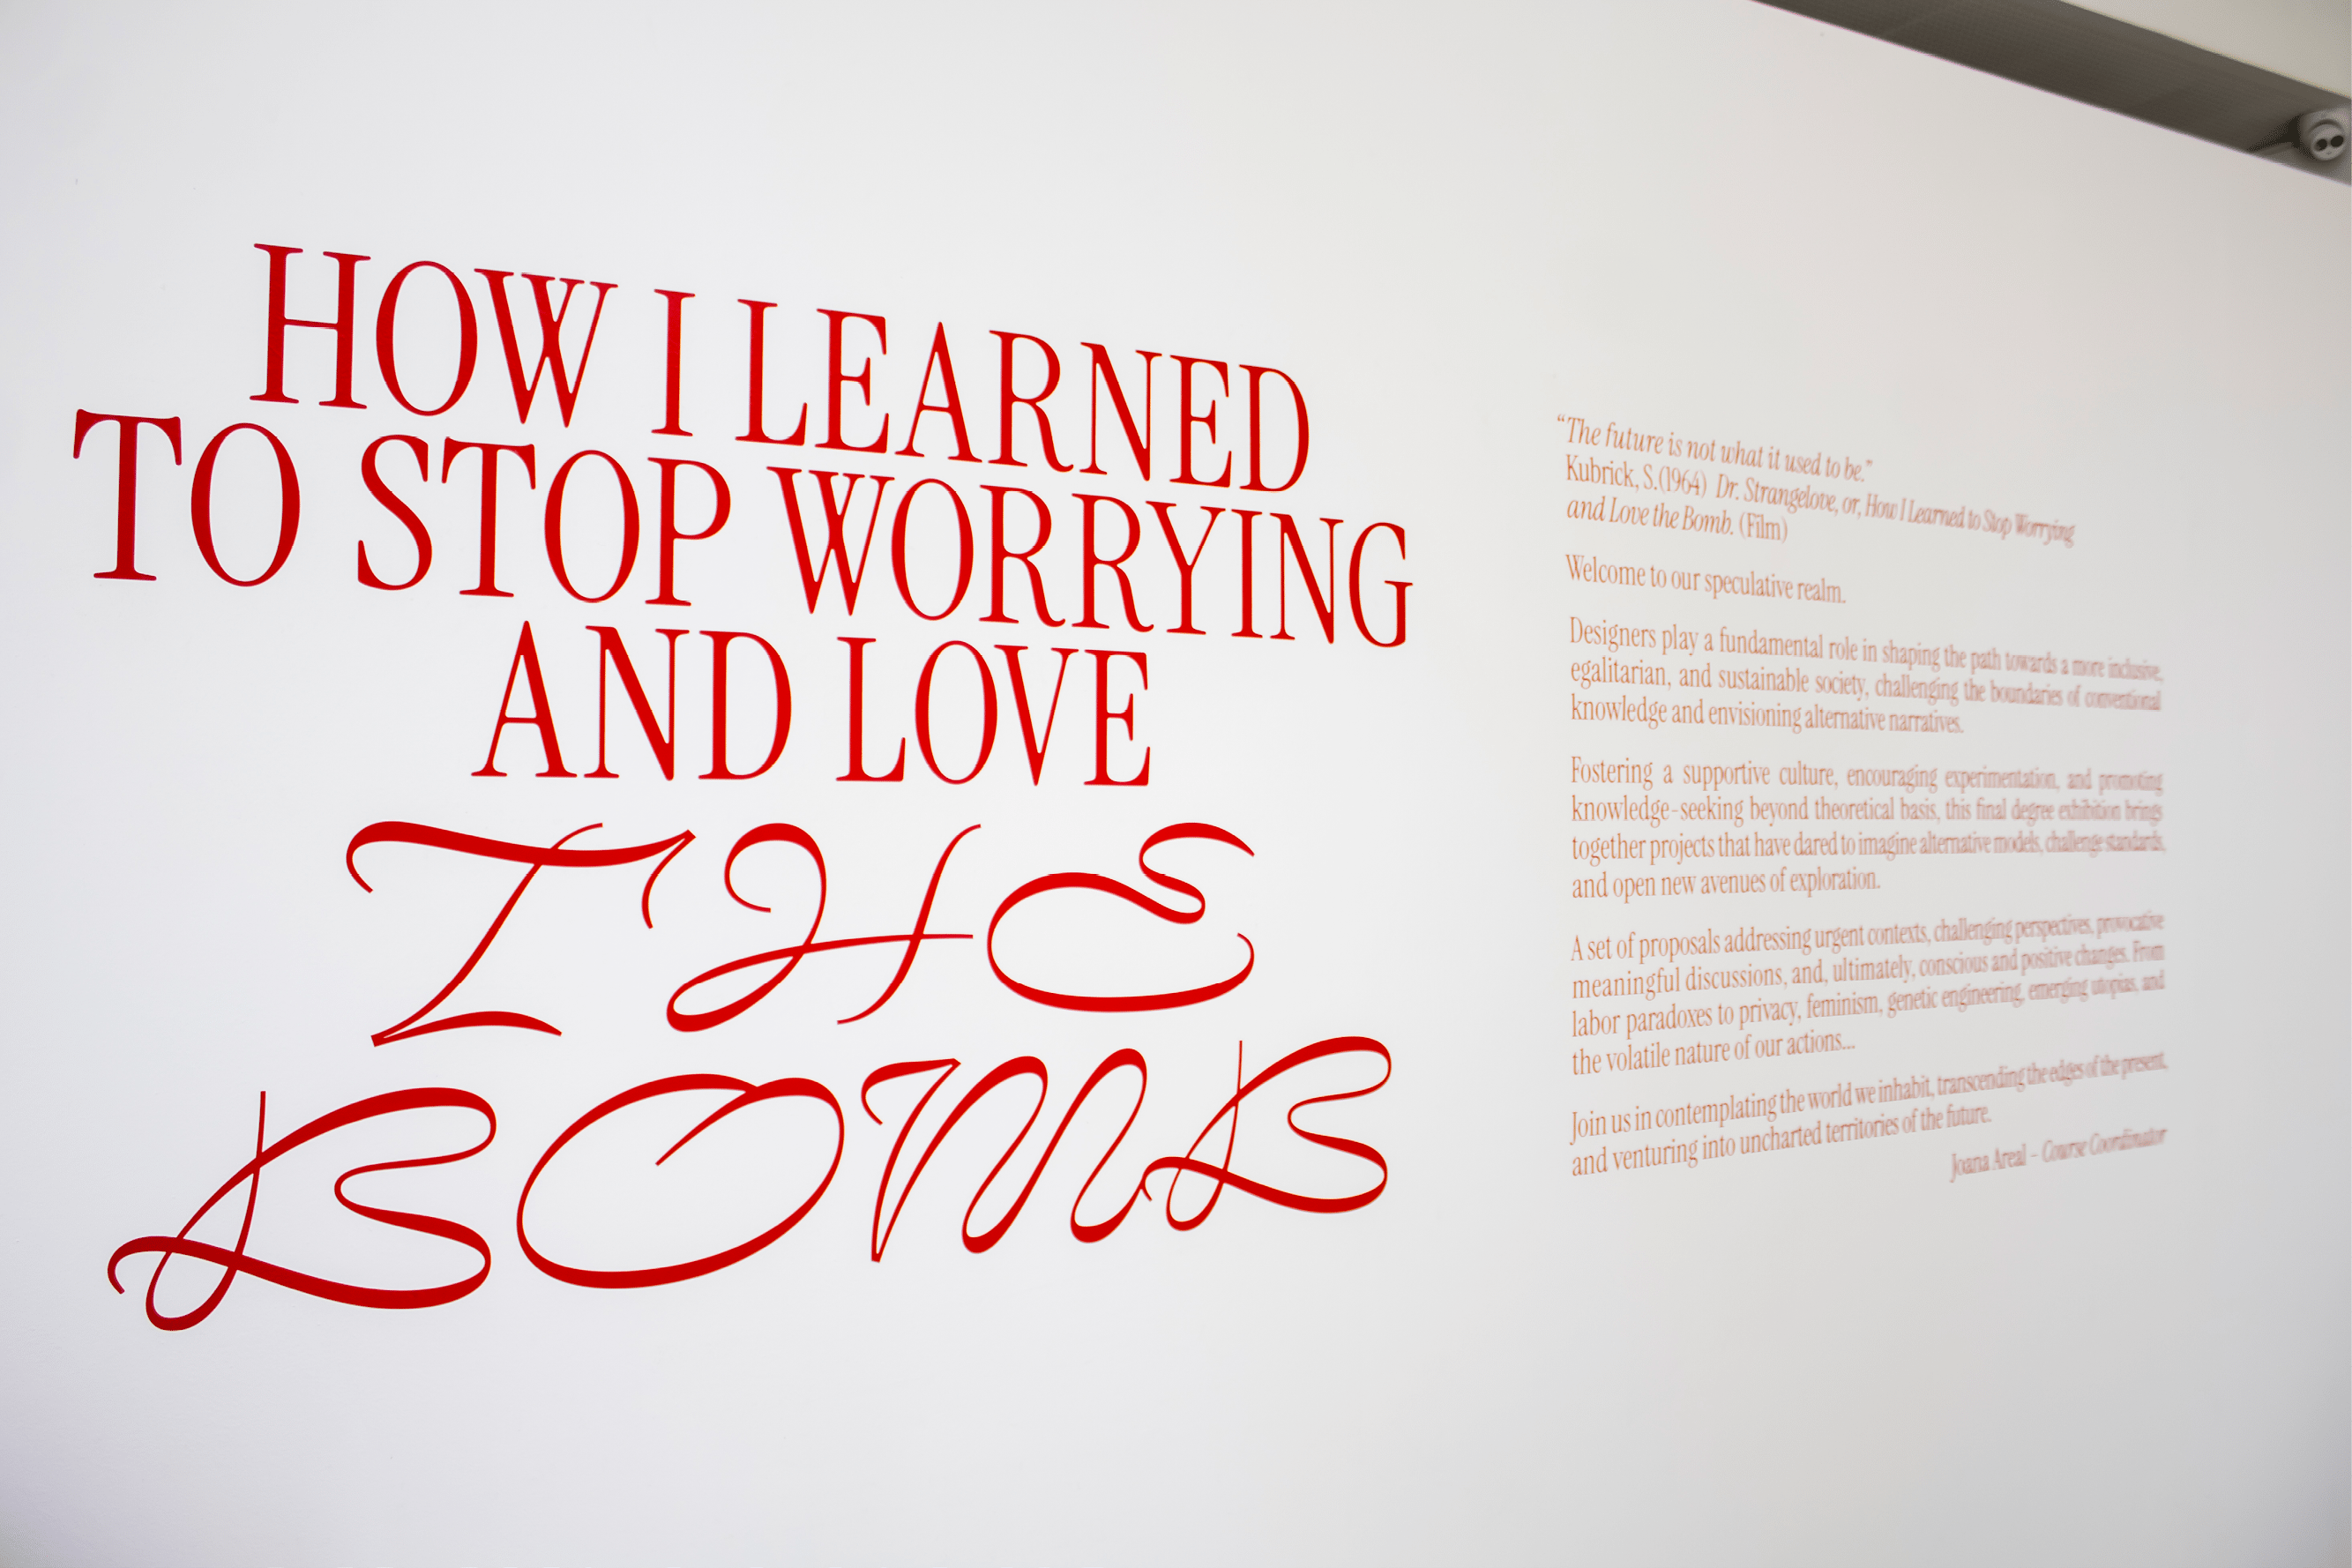 HOW I LEARNED
TO STOP WORRYING
AND LOVE
THE
BOMB
“The future is not what it used to be.”
Kubrick, S.(1964) Dr. Strangelove, or, How I Learned to Stop Worrying
and Love the Bomb. (Film)
Welcome to our speculative realm.
Designers play a fundamental role in shaping the path towards a more inclusive,
egalitarian, and sustainable society, challenging the boundaries of conventional
knowledge and envisioning alternative narratives.
Fostering a supportive culture, encouraging experimentation, and promoting
knowledge-seeking beyond theoretical basis, this final degree exhibition brings
together projects that have dared to imagine alternative models, challenge standards,
and open new avenues of exploration.
A set of proposals addressing urgent contexts, challenging perspectives, provocative
meaningful discussions, and, ultimately, conscious and positive changes. From
labor paradoxes to privacy, feminism, genetic engineering, emerging utopias, and
the volatile nature of our actions...
Join us in contemplating the world we inhabit, transcending the edges of the present,
and venturing into uncharted territories of the future.
Joana Areal – Course Coordinator